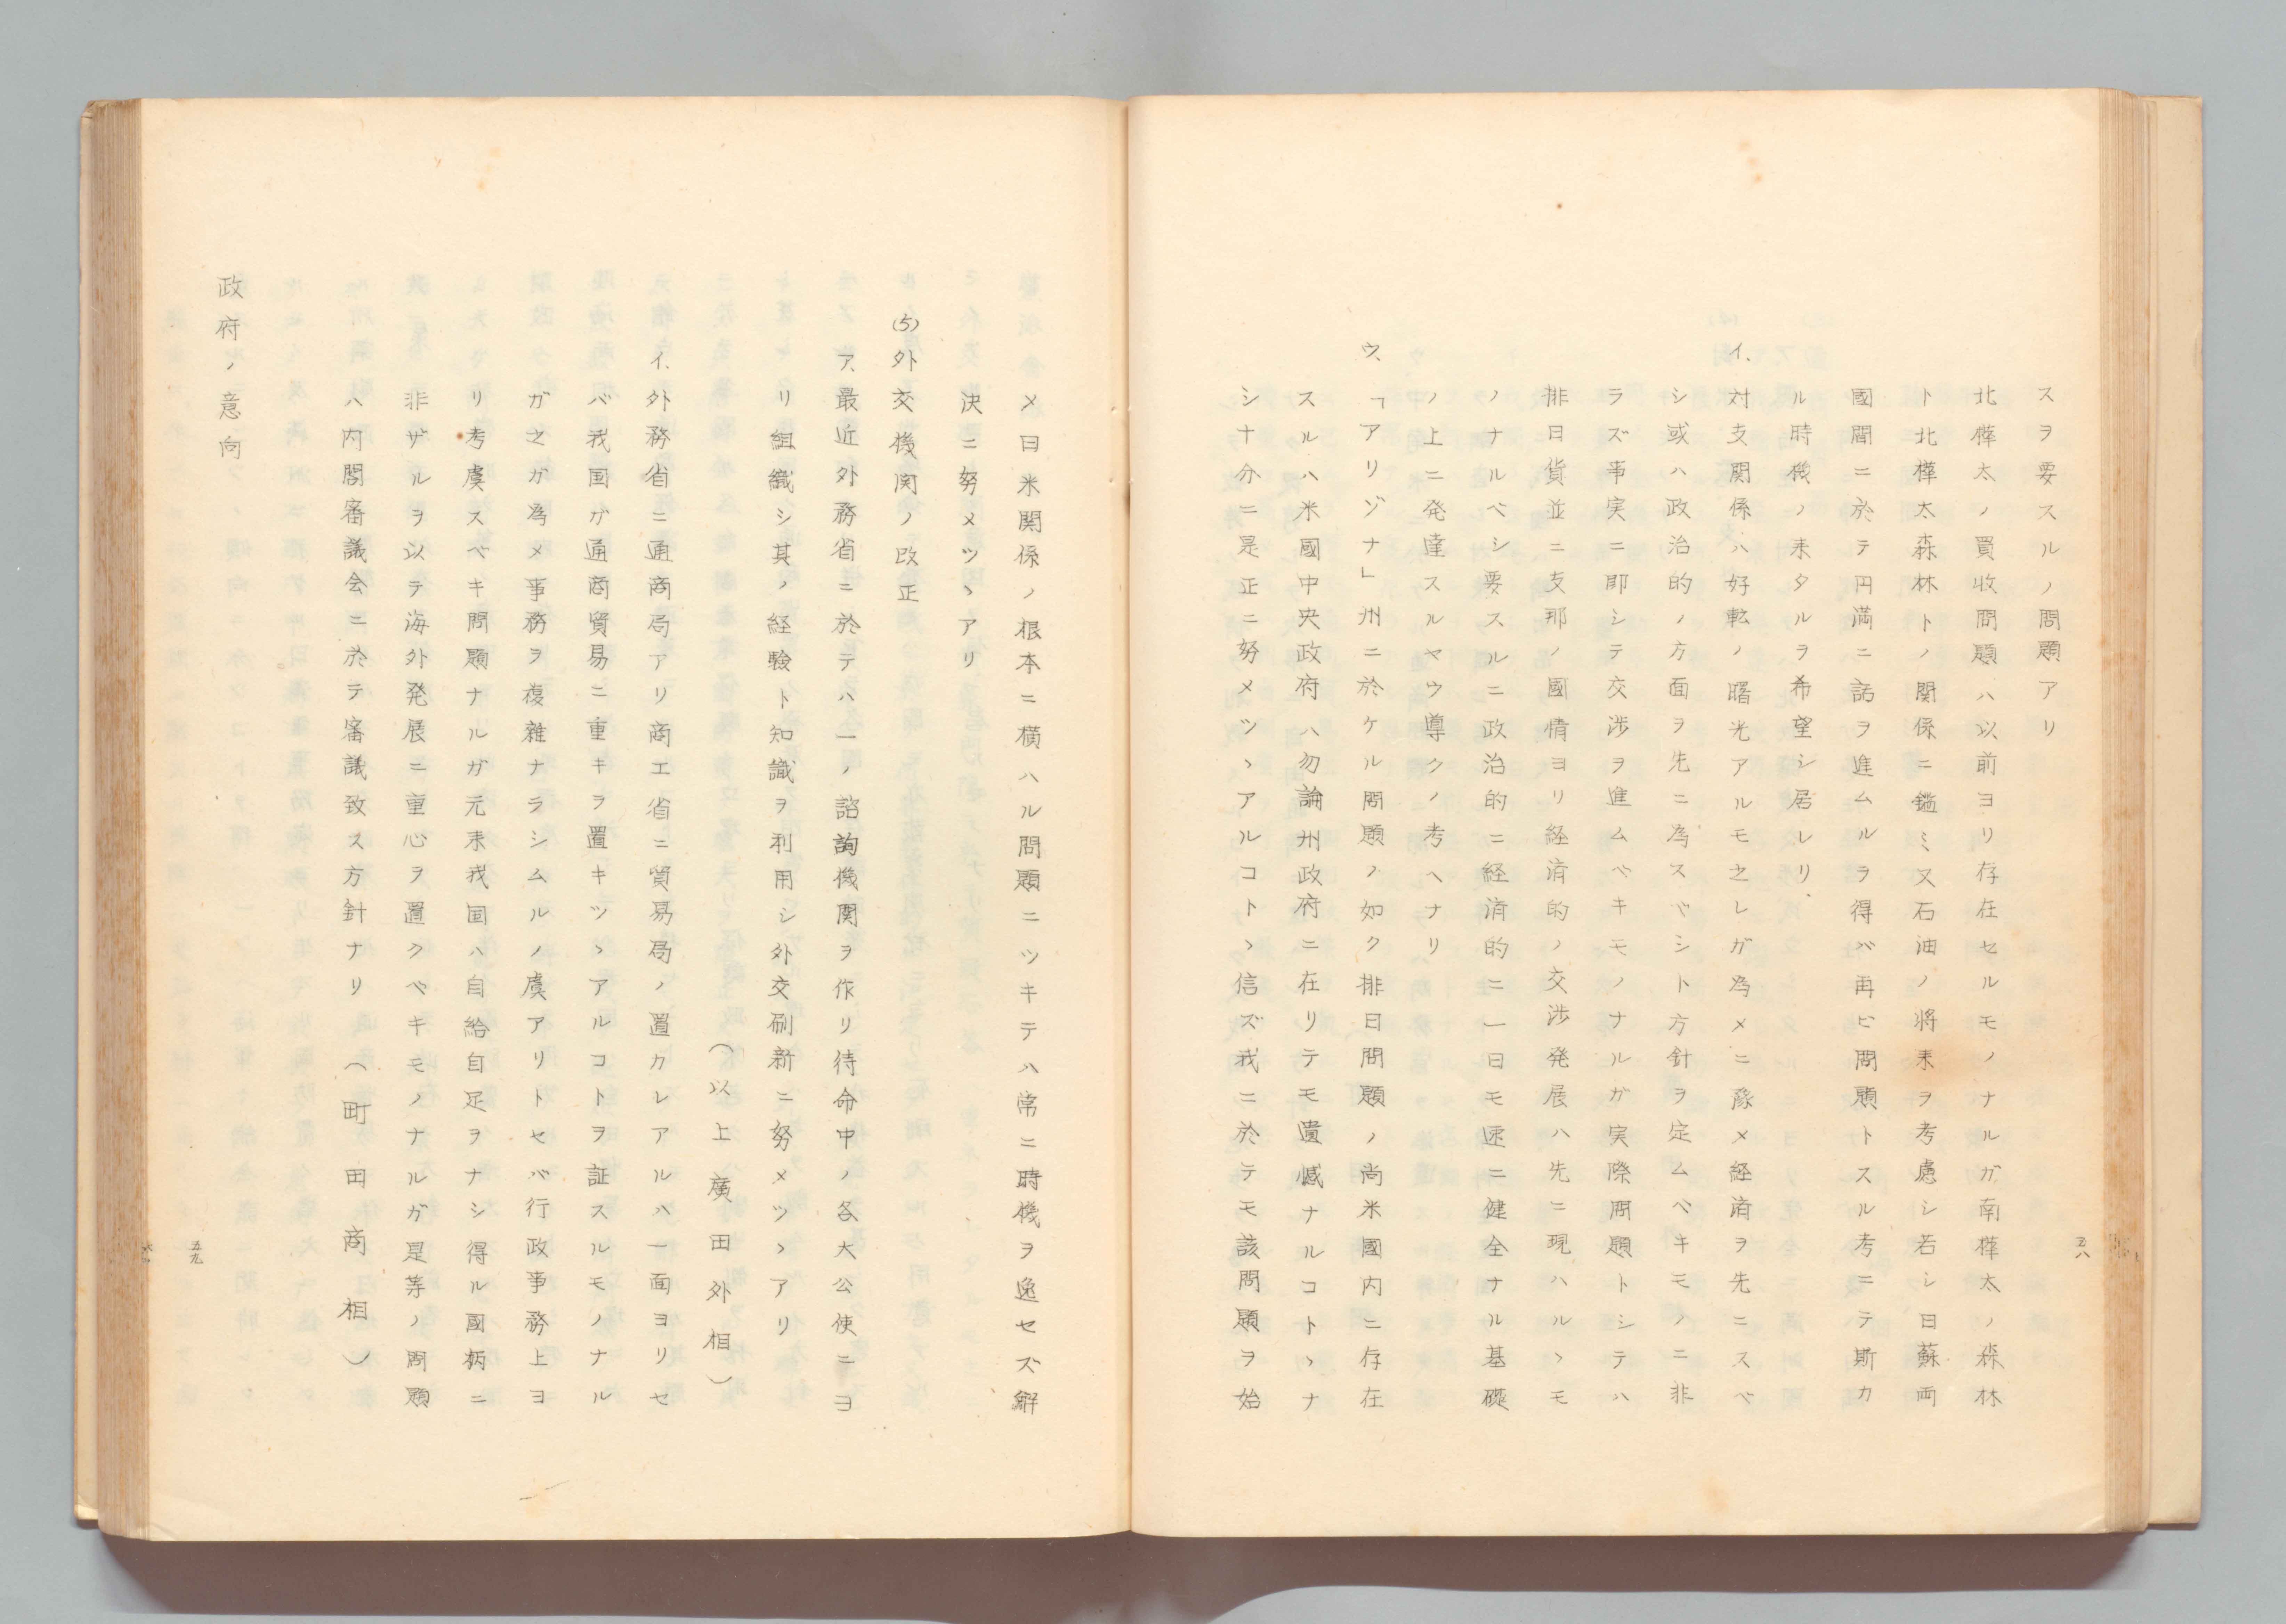 スヲ要スルノ問題アリ
北樺太ノ買收問題ハ以前ヨリ存在セルモノナルガ南樺太ノ森林
ト北樺太森林トノ関係ニ鑑ミ又石油ノ将来ヲ考慮シ若シ日蘇両
國間ニ於テ円満ニ話ヲ進ムルヲ得バ再ビ問題トスル考ニテ斯カ
ル時機ノ来タルヲ希望シ居レリ
イ、対支関係ハ好転ノ曙光アルモ之レガ為メニ豫メ経済ヲ先ニスベ
シ或ハ政治的ノ方面ヲ先ニ為スベシト方針ヲ定ムベキモノニ非
ラズ事実ニ即シテ交渉ヲ進ムベキモノナルガ実際問題トシテハ
排日貨並ニ支那ノ國情ヨリ経済的ノ交渉発展ハ先ニ現ハルヽモ
ノナルベシ要スルニ政治的ニ経済的ニ一日モ速ニ健全ナル基礎
ノ上ニ発達スルヤウ導クノ考ヘナリ
ウ、「アリゾナ」州ニ於ケル問題ノ如ク排日問題ノ尚米國内ニ存在
スルハ米國中央政府ハ勿論州政府ニ在リテモ遺憾ナルコトヽナ
シ十分ニ是正ニ努メツヽアルコトヽ信ズ我ニ於テモ該問題ヲ始
五八
メ日米関係ノ根本ニ横ハル問題ニツキテハ常ニ時機ヲ逸セズ解
決ニ努メツヽアリ
(5)外交機関ノ改正
ア、最近外務省ニ於テハ一ノ諮詢機関ヲ作リ待命中ノ各大公使ニヨ
リ組織シ其ノ経験ト知識ヲ利用シ外交刷新ニ努メツヽアリ
(以上廣田外相)
イ、外務省ニ通商局アリ商工省ニ貿易局ノ置カレアルハ一面ヨリセ
バ我国ガ通商貿易ニ重キヲ置キツヽアルコトヲ証スルモノナル
ガ之ガ為メ事務ヲ複雑ナラシムルノ虞アリトセバ行政事務上ヨ
リ考虞スベキ問題ナルガ元来我国ハ自給自足ヲナシ得ル國柄ニ
非ザルヲ以テ海外発展ニ重心ヲ置クベキモノナルガ是等ノ問題
ハ内閣審議会ニ於テ審議致ス方針ナリ(町田商相)
政府ノ意向
五九